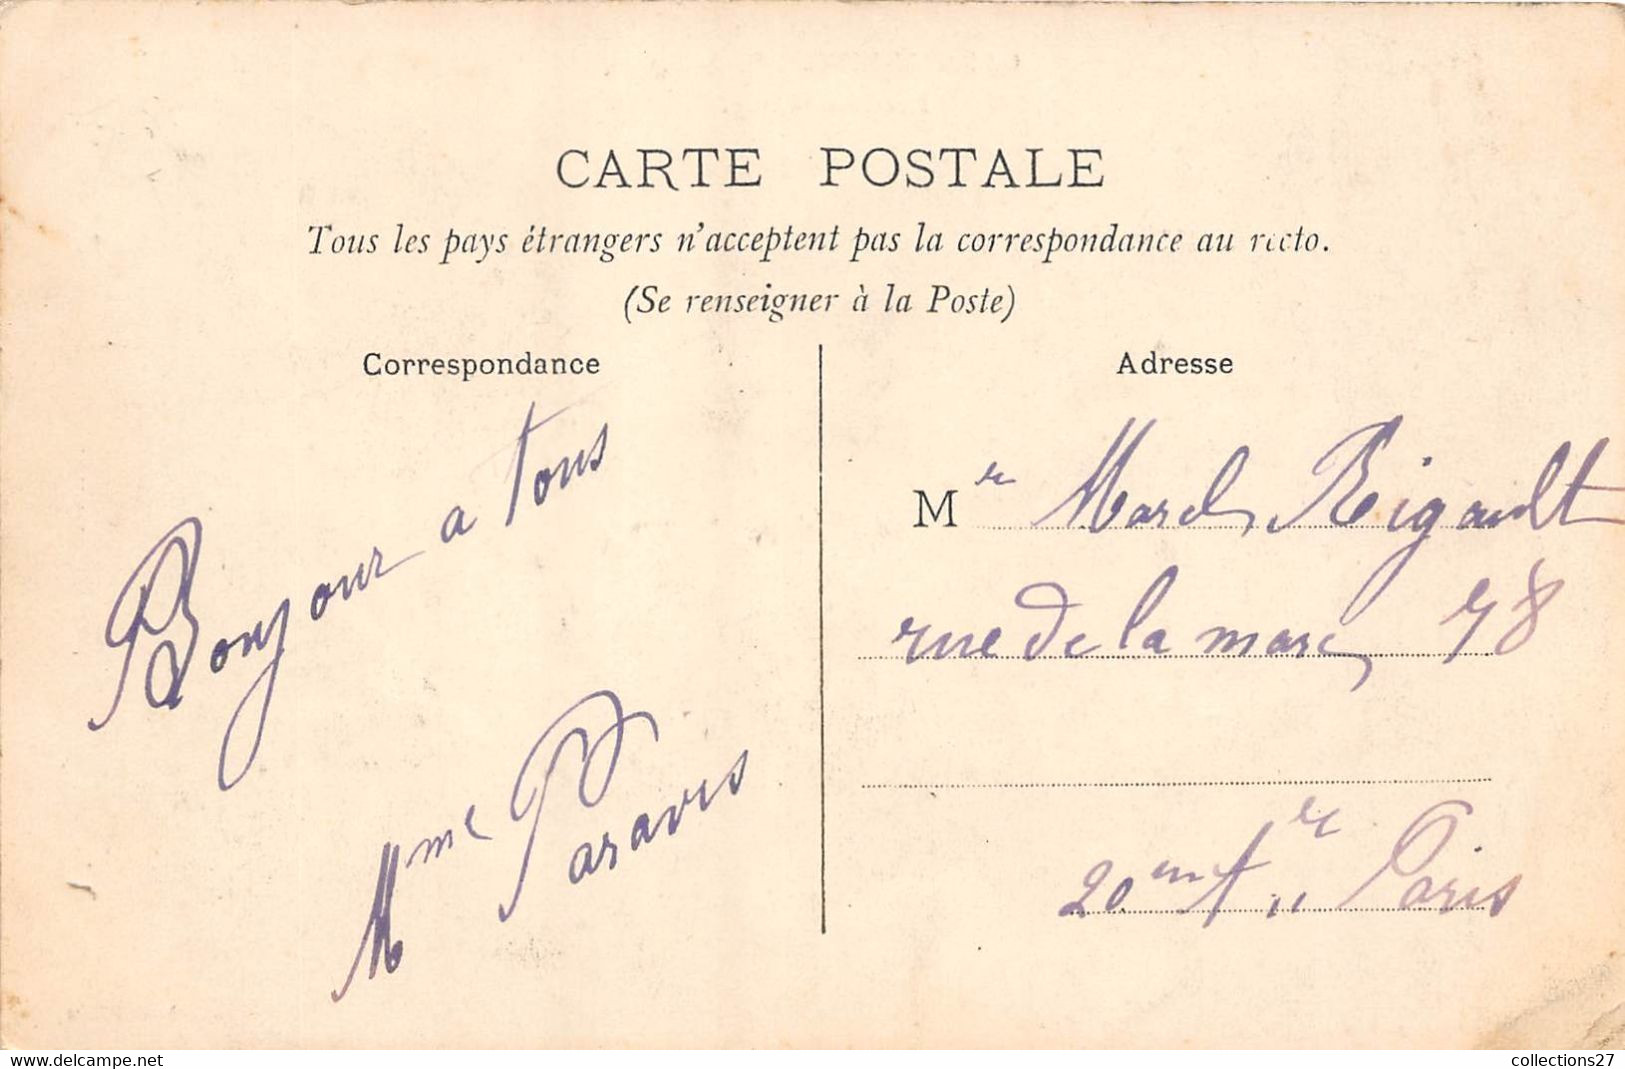 CARTE POSTALE
Tous les pays étrangers n'acceptent pas la correspondance au recto.
(Se renseigner à la Poste)
Correspondance
Bonjour a tous
Mme Paravis
Adresse
Mr Marcel Rigault
rue de la mare 78
20em Ar Paris
www.delcampe.net
collections27